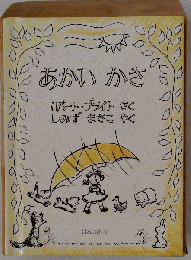 あかい かさ
ロバート・ブライト さく
しみず まさこ やく